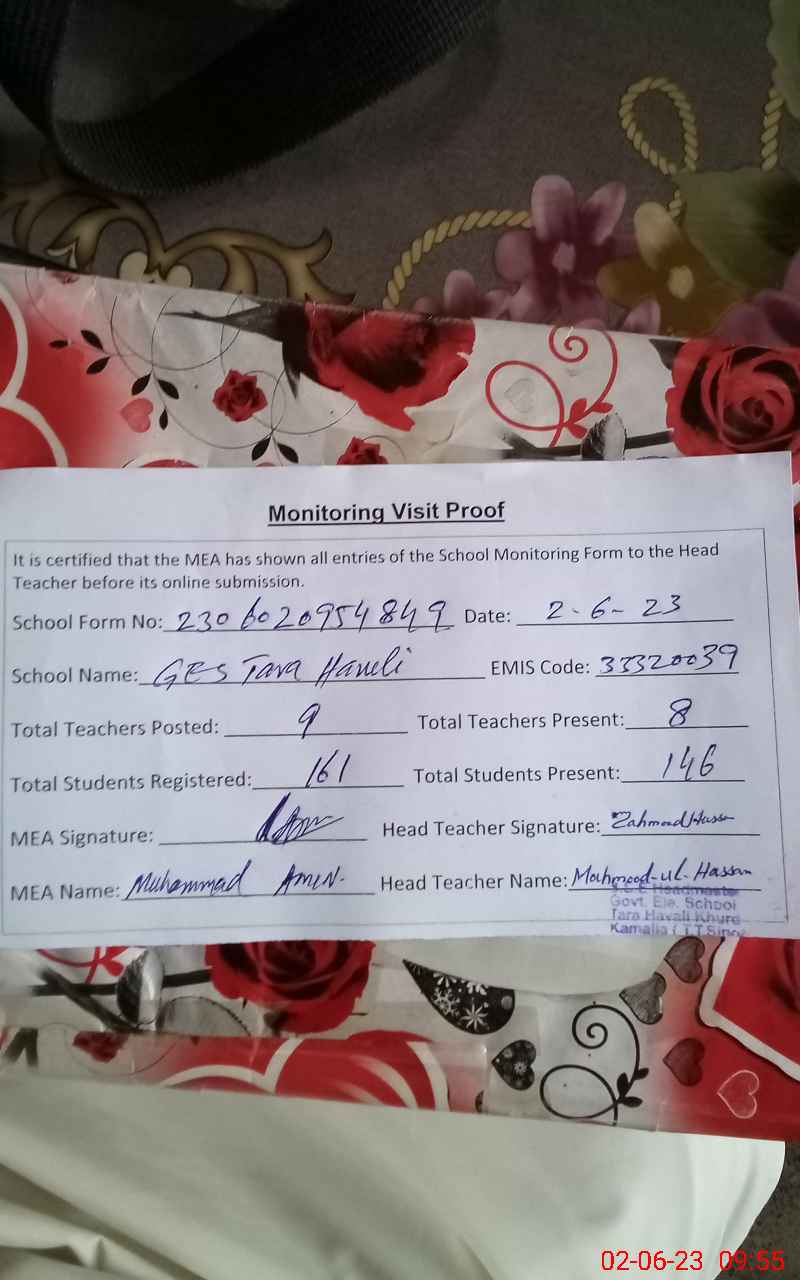 Monitoring Visit Proof
It is certified that the MEA has shown all entries of the School Monitoring Form to the Head
Teacher before its online submission.
School Form No: 2306020954849 Date: 2-6-23
School Name: GES Tara Haveli EMIS Code: 33320039
Total Teachers Posted: 9 Total Teachers Present: 8
Total Students Registered: 161 Total Students Present: 146
MEA Signature: Head Teacher Signature:
MEA Name: Muhammad AMIN. Head Teacher Name: Mahmood-ul-Hassan
Headmaster
Govt. Ele. School
Tara Havali Khurd
Kamalia
02-06-23 09:55